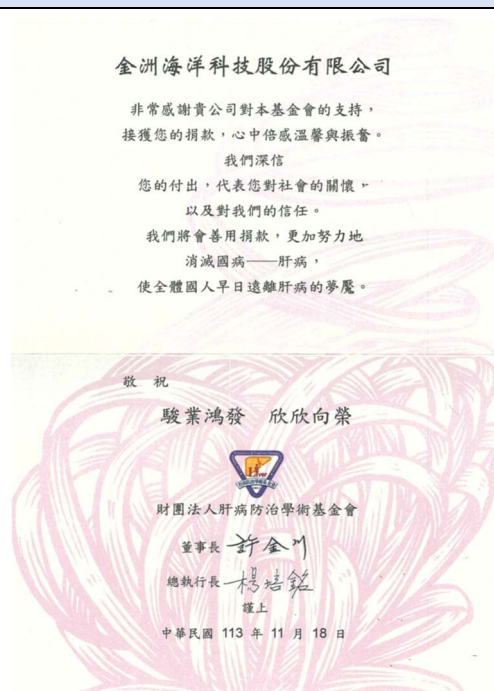 金洲海洋科技股份有限公司
非常感謝貴公司對本基金會的支持，
接獲您的捐款，心中倍感溫馨與振奮。
我們深信
您的付出，代表您對社會的關懷，
以及對我們的信任。
我們將會善用捐款，更加努力地
消滅國病——肝病，
使全體國人早日遠離肝病的夢魘。
敬 祝
駿業鴻發 欣欣向榮
財團法人肝病防治學術基金會
董事長 許金川
總執行長 楊培銘
謹上
中華民國 113 年 11 月 18 日